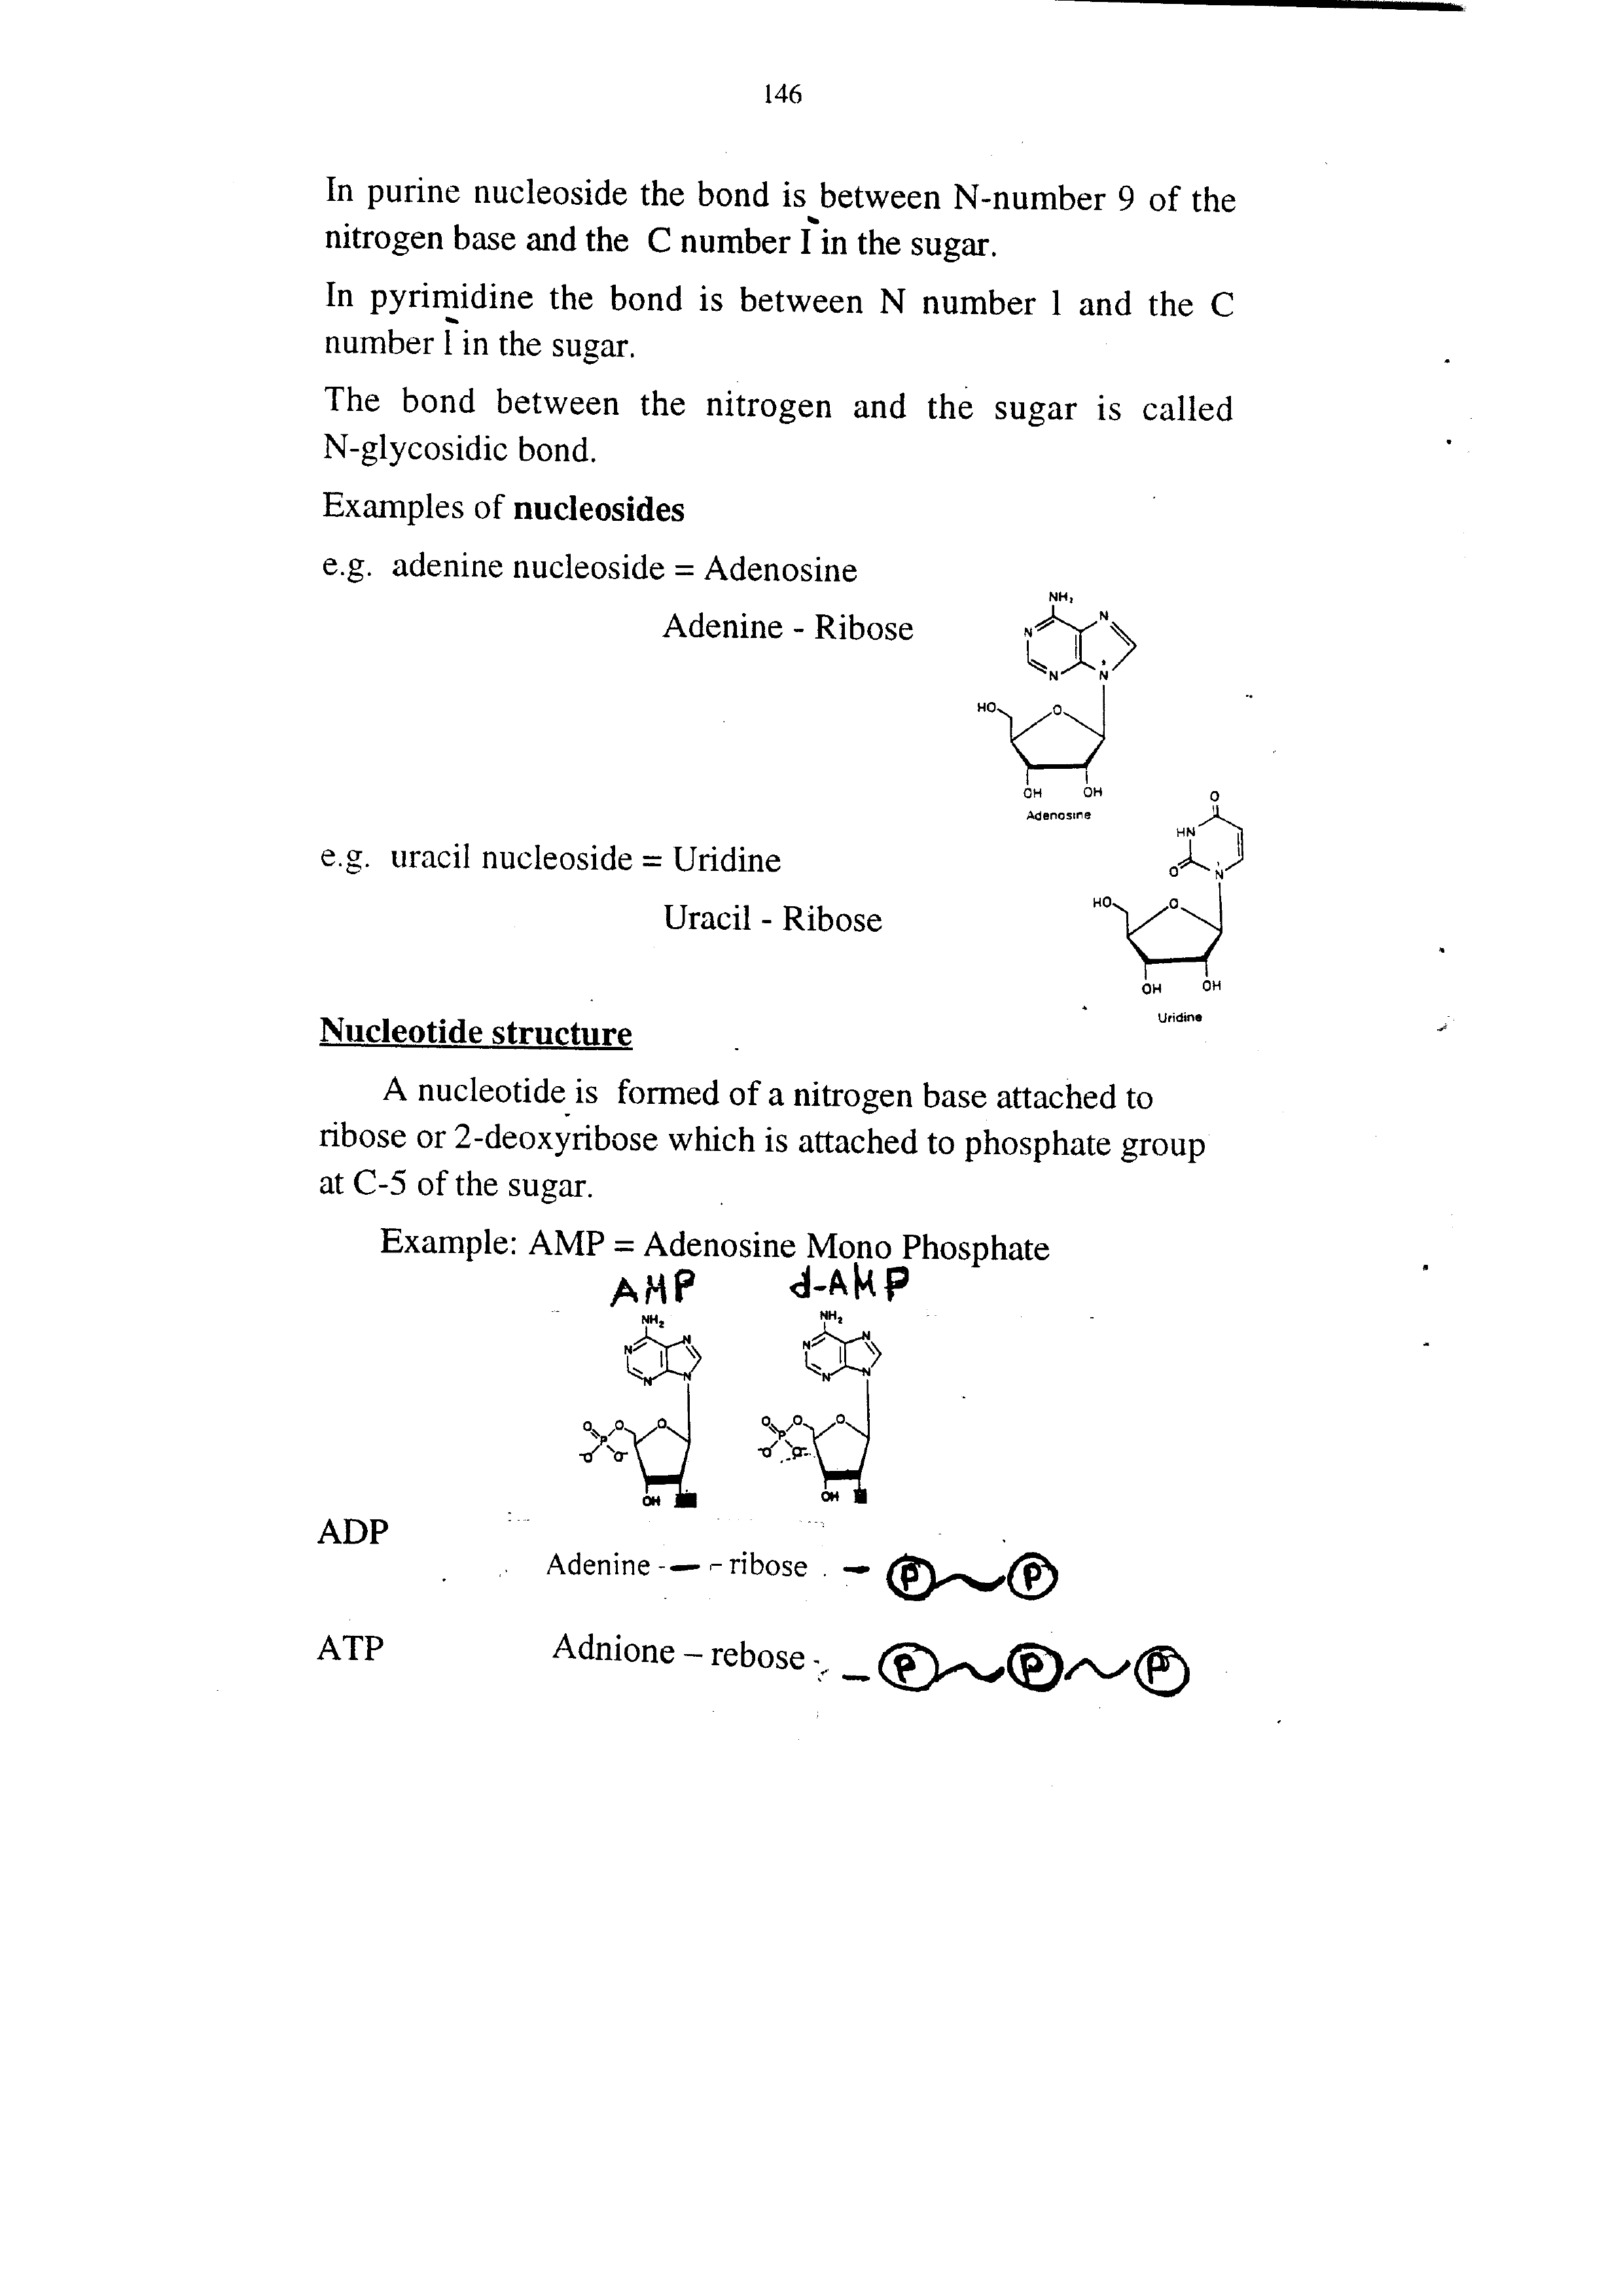 146
In purine nucleoside the bond is between N-number 9 of the
nitrogen base and the C number 1̀ in the sugar.
In pyrimidine the bond is between N number 1 and the C
number 1̀ in the sugar.
The bond between the nitrogen and the sugar is called
N-glycosidic bond.
Examples of nucleosides
e.g. adenine nucleoside = Adenosine
Adenine - Ribose
NH₂
N
N
N
N
HO
O
OH OH
Adenosine
e.g. uracil nucleoside = Uridine
Uracil - Ribose
O
HN
O
N
HO
O
OH OH
Uridine
Nucleotide structure
A nucleotide is formed of a nitrogen base attached to
ribose or 2-deoxyribose which is attached to phosphate group
at C-5 of the sugar.
Example: AMP = Adenosine Mono Phosphate
AMP d-AMP
NH₂ NH₂
N N N N
N N N N
O O O O O O
P P
⁻O O⁻ ⁻O O⁻
OH OH
ADP
Adenine - — - ribose - P ~ P
ATP Adnione – rebose - – P ~ P ~ P